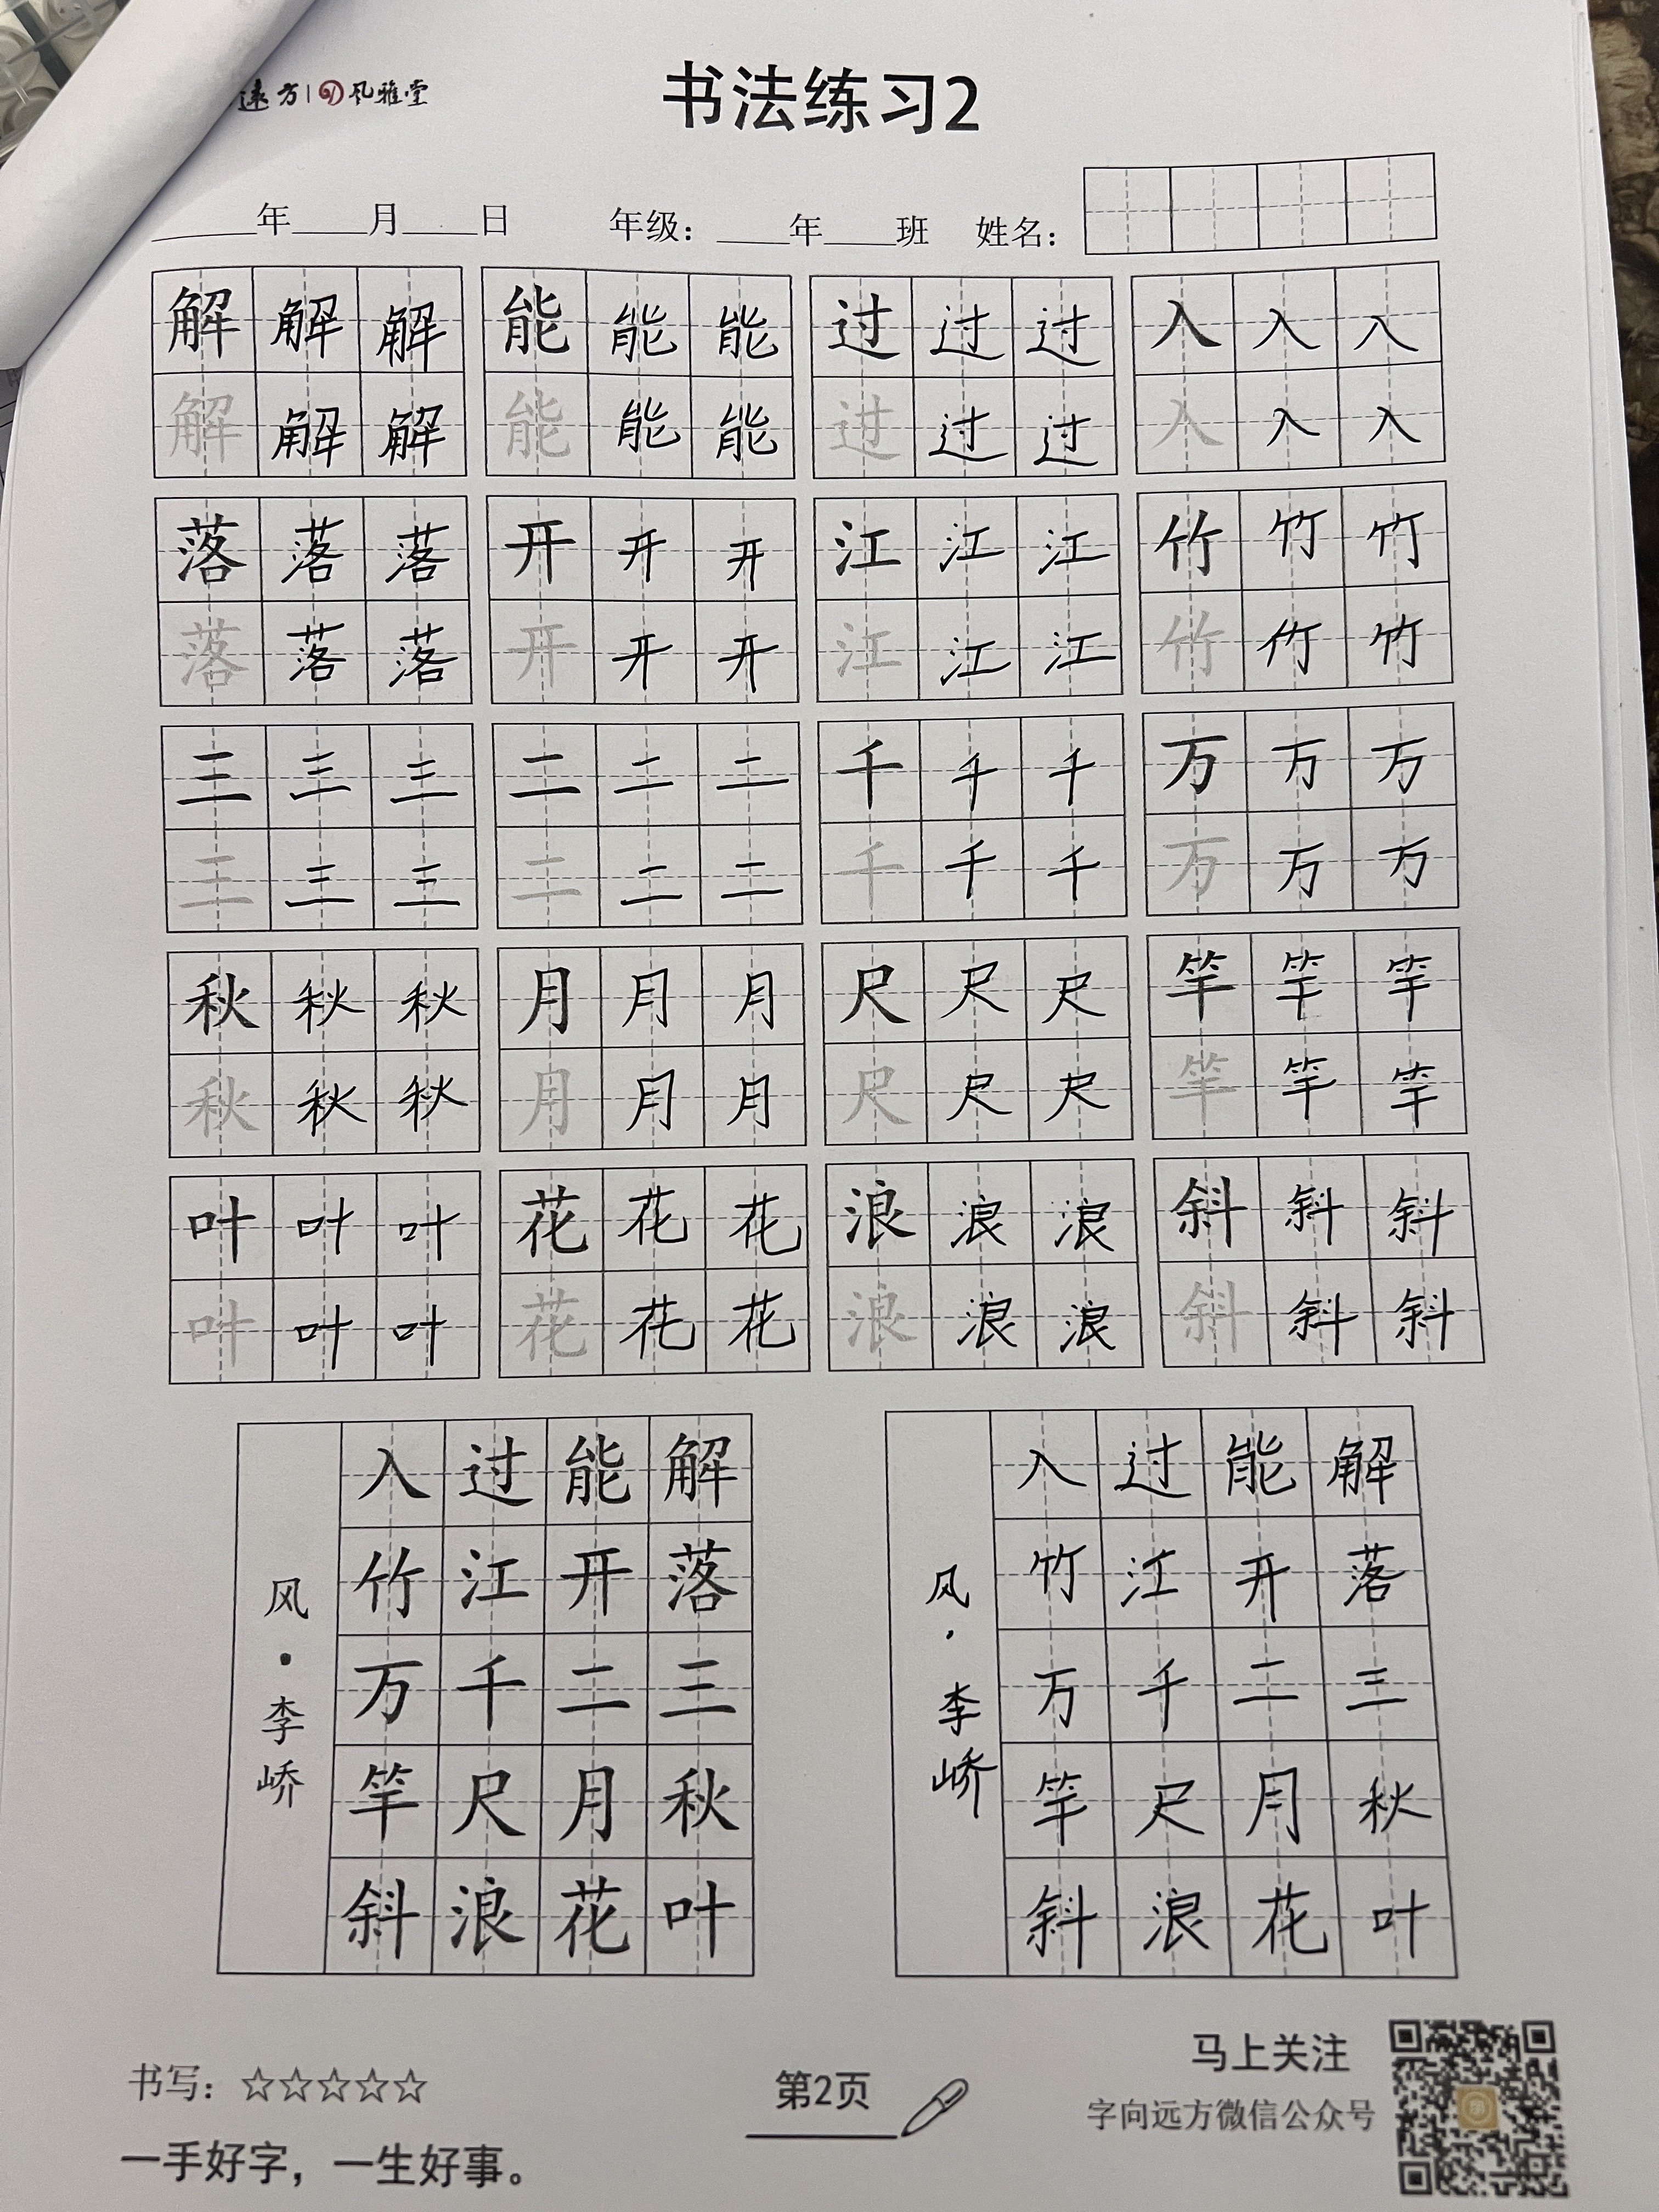 遠方 风雅堂
书法练习2
年 月 日 年级： 年 班 姓名：
解 解 解 能 能 能 过 过 过 入 入 入
解 解 解 能 能 能 过 过 过 入 入 入
落 落 落 开 开 开 江 江 江 竹 竹 竹
落 落 落 开 开 开 江 江 江 竹 竹 竹
三 三 三 二 二 二 千 千 千 万 万 万
三 三 三 二 二 二 千 千 千 万 万 万
秋 秋 秋 月 月 月 尺 尺 尺 竿 竿 竿
秋 秋 秋 月 月 月 尺 尺 尺 竿 竿 竿
叶 叶 叶 花 花 花 浪 浪 浪 斜 斜 斜
叶 叶 叶 花 花 花 浪 浪 浪 斜 斜 斜
解落三秋叶
能开二月花
过江千尺浪
入竹万竿斜
风·李峤
解落三秋叶
能开二月花
过江千尺浪
入竹万竿斜
风·李峤
书写：☆☆☆☆☆
一手好字，一生好事。
第2页
马上关注
字向远方微信公众号